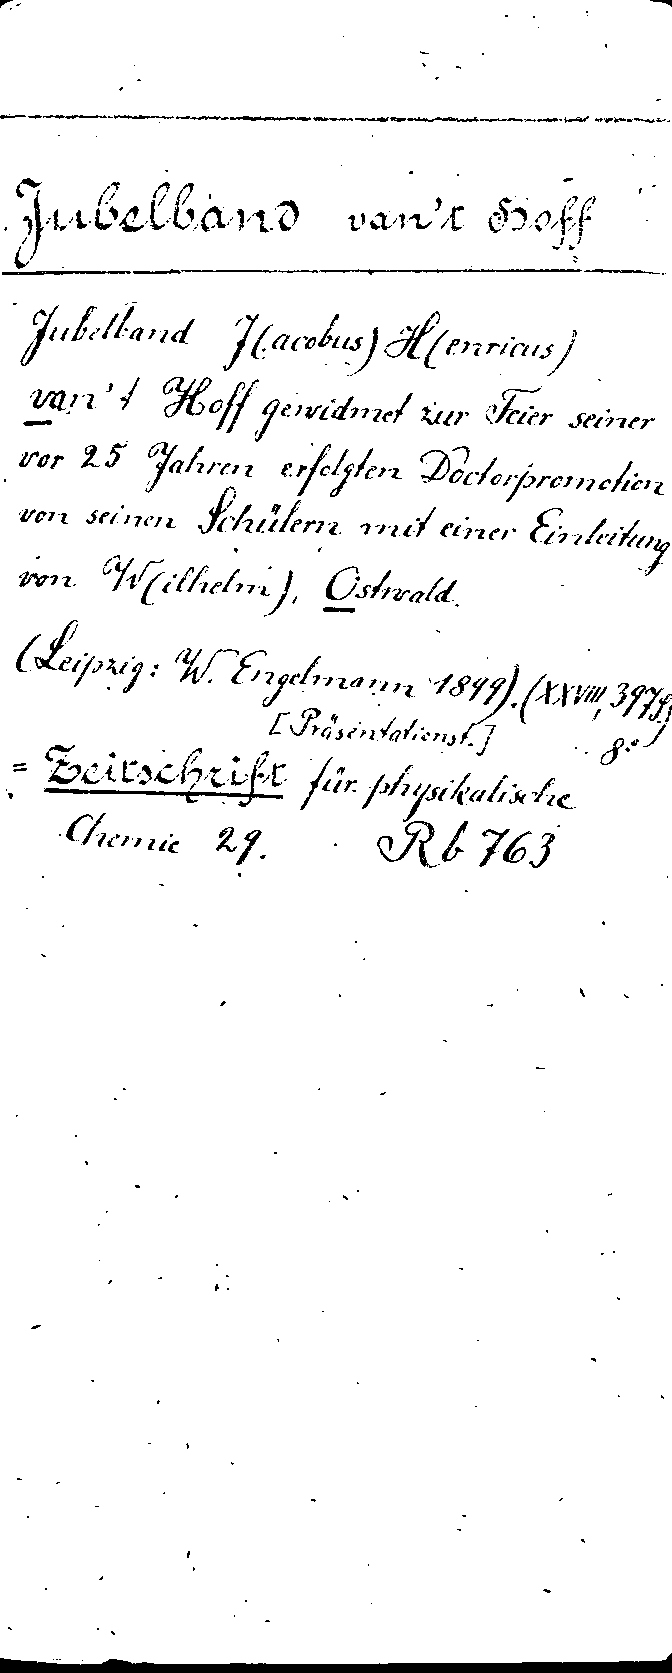 Jubelband van't Hoff
Jubelband J(acobus) H(enricus)
van't Hoff gewidmet zur Feier seiner
vor 25 Jahren erfolgten Doctorpromotion
von seinen Schülern mit einer Einleitung
von W(ilhelm), Ostwald.
(Leipzig: W. Engelmann 1899). (XXVIII, 397 S.)
[Präsentationst.] 8°
= Zeitschrift für physikalische
Chemie 29. Rb 763